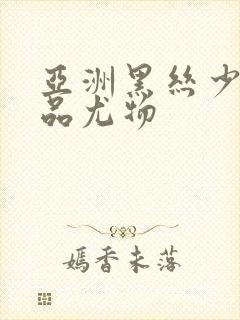 亞洲黑絲少
品尤物
嫣香未落